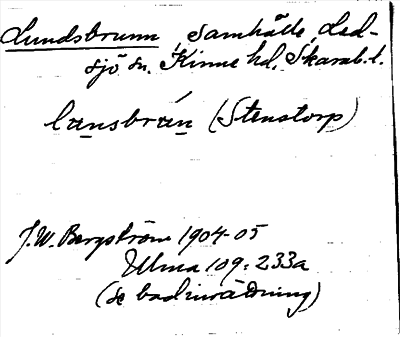 Lundsbrunn samhälle, Led-
sjö sn. Kinne hd. Skarab. l.
lansbrún (Stenstorp)
J. W. Bergström 1904-05
Ulma 109:233a
(se badinrättning)